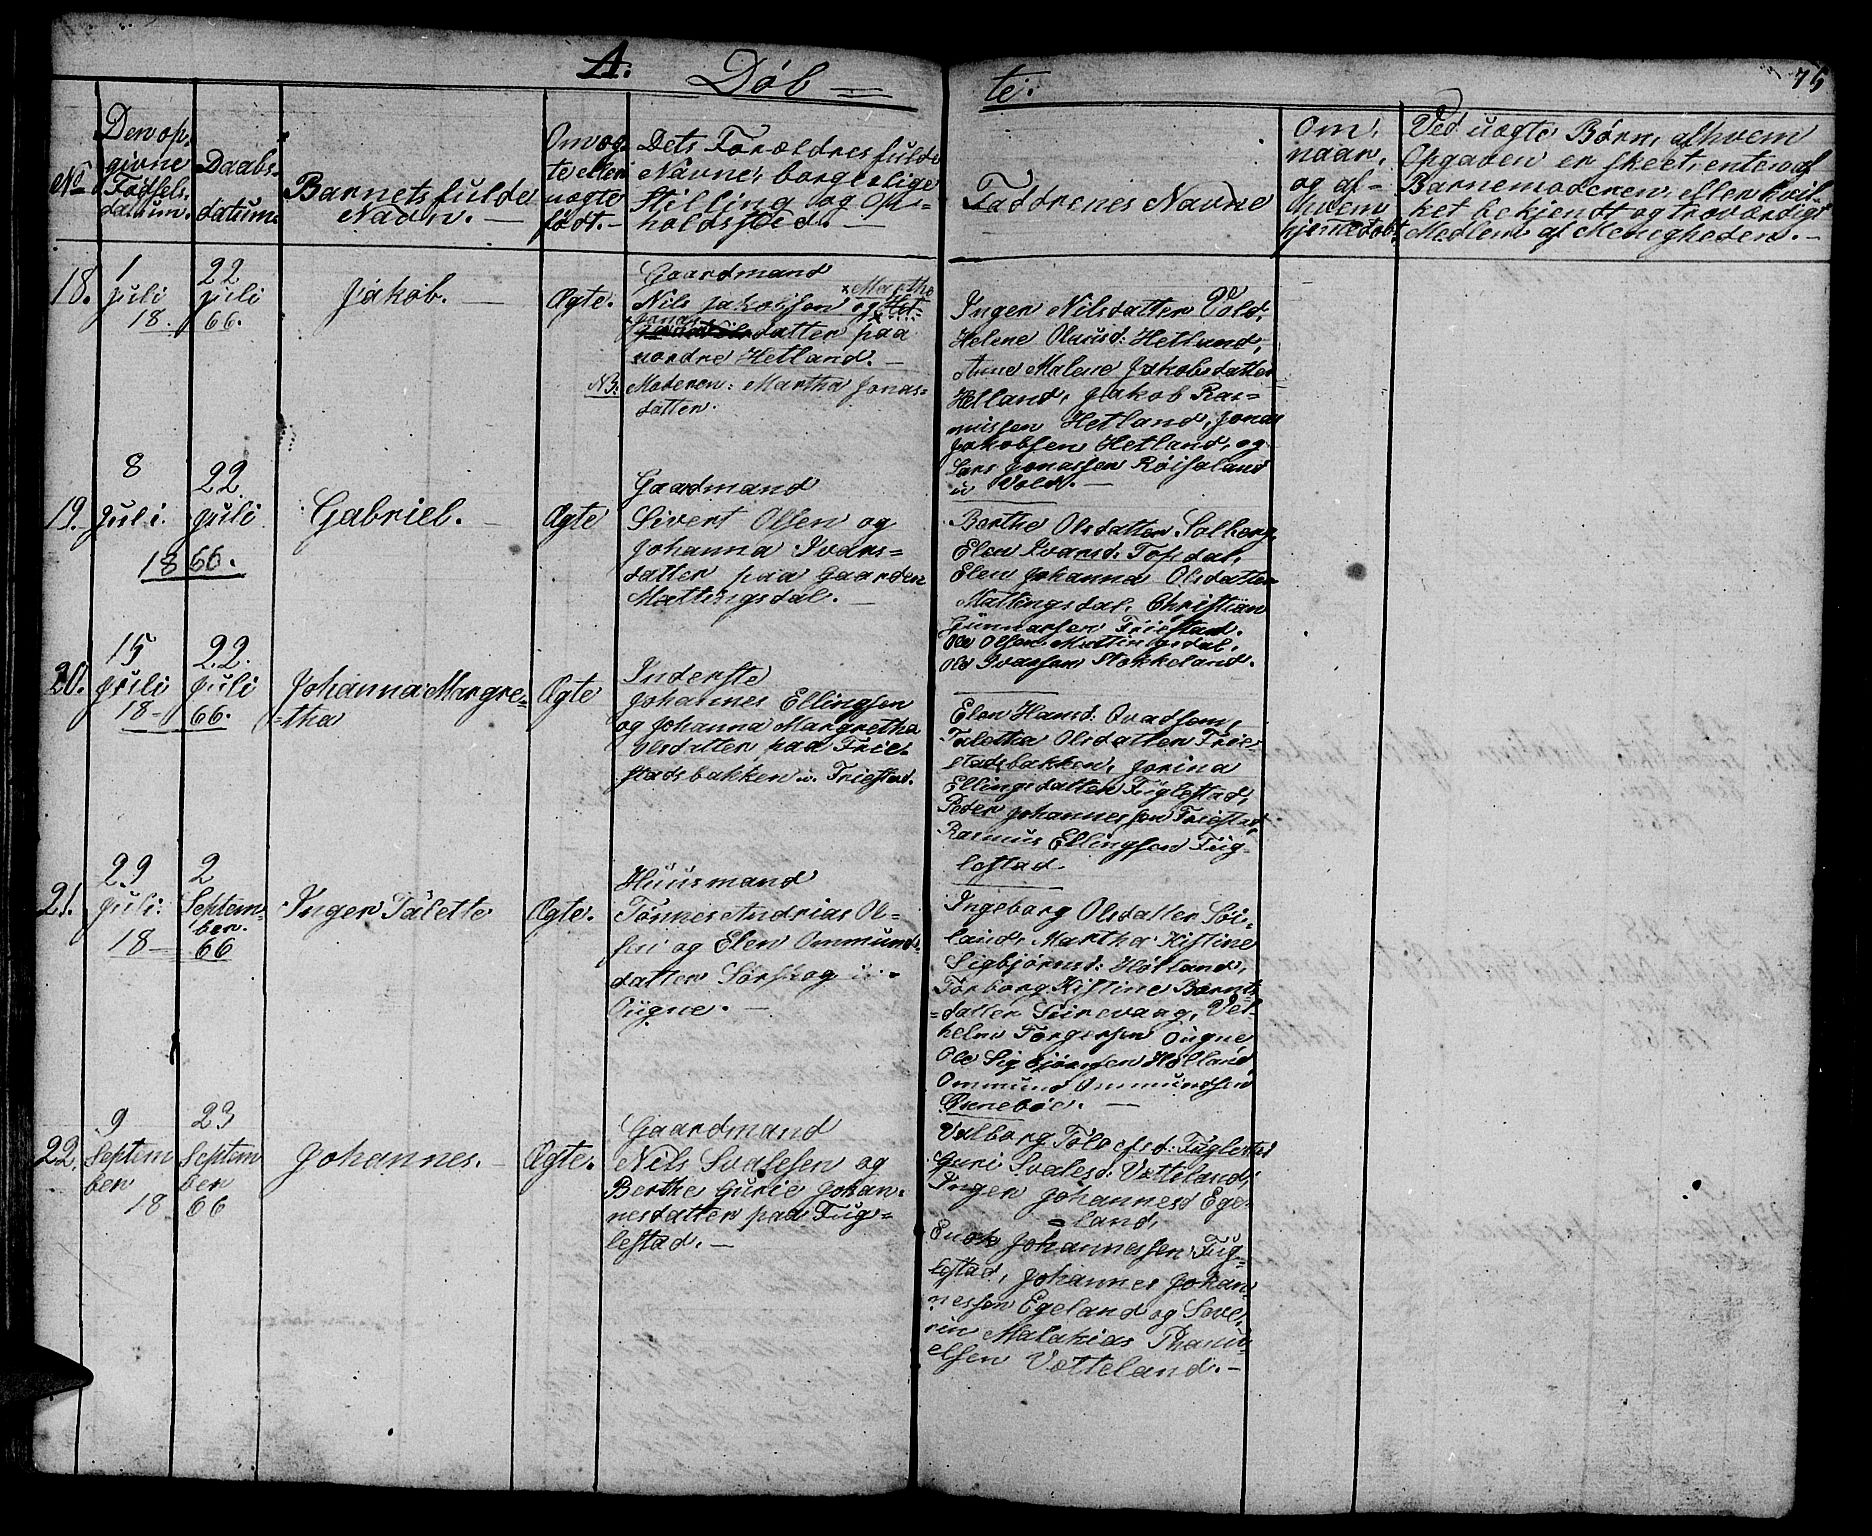 A. Döb = te. 75
No
Den op-
givne
Födsels-
datum.
Daabs-
datum.
Barnets fulde
Navn. —
Om æg-
te eller
uægte
födt. —
Dets Forældres fulde
Navne, borgerlige
Stilling og Op-
holdssted. —
Faddrenes Navne
Om,
naar,
og af
hvem
hjemedöbt.
Ved uægte Börn, af hvem
Opgaven er skeet, enten af
Barnemoderen, eller hvil-
ket bekjendt og troværdigt
Medlem af Menigheden. —
18.
1
Juli
18
22
Juli
66.
Jakob. —
Ægte.
Gaardmand
× Marthe
Nils Jakobsen og
Jonas
datter paa
nordre Hetland. —
NB. Moderen: Martha Jonas=
datter.
Inger Nilsdatter Vold,
Helene Hetland,
Anne Malene Jakobsdatter
Hetland, Jakob Ras=
mussen Hetland, Jonas
Jakobsen Hetland, og
Lars Jonassen Röiseland
u Vold. —
19.
8
Juli.
22
Juli
1866.
Gabriel. —
Ægte
Gaardmand
Sivert Olsen og
Johanna Ivars=
datter paa Gaarden
Mattingsdal. —
Berthe Olsdatter Solberg,
Elen Ivarsd: Topdal,
Elen Johanna Olsdatter
Mattingsdal, Christian
Gunnarsen Friestad.
Ole Olsen Mattingsdal,
Ole Ivarsen Stokkeland.
20.
15
Juli
18—
22.
Juli
66.
Johanna Margre=
=tha
Ægte
Inderste
Johannes Ellingsen
og Johanna Margretha
Olsdatter, paa Frie-
stadsbakken u. Friestad.
Elen Hansd: Qvadsem,
Taletta Olsdatter Frie-
stadsbakken, Jorina
Ellingsdatter Fuglestad,
Peder Johannessen Friestad,
Rasmus Ellingsen Fug-
lestad.
21.
29
Juli.
18—
2
Septem-
ber.
66
Inger Talette
Ægte.
Huusmand
Tönnes Andrias Ol-
sen og Elen Ommunds-
datter Sörskog u.
Ougne. —
Ingeborg Olsdatter Söi-
land, Martha Kistine
Sigbjörnsd: Hölland,
Torborg Kistine Bernts
=datter Sirevaag, Vel-
helm Torgersen Ougne
Ole Sigbjörnsen Hölland,
Ommund Ommundsen
—
22.
9
Septem
ber
18
23
Septem
ber
66
Johannes. —
Ægte.
Gaardmand
Nils Svalesen og
Berthe Gurie Johan-
nesdatter paa Fug=
lestad. —
Valborg Tolefsd: Fuglestad
Guri Svalesd: Vætteland,
Inger Johannesd Ege-
=land,
Enok Johannessen Fug=
lestad, Johannes Johan-
nessen Egeland og Seve-
rin Malakias
elsen Vætteland. —